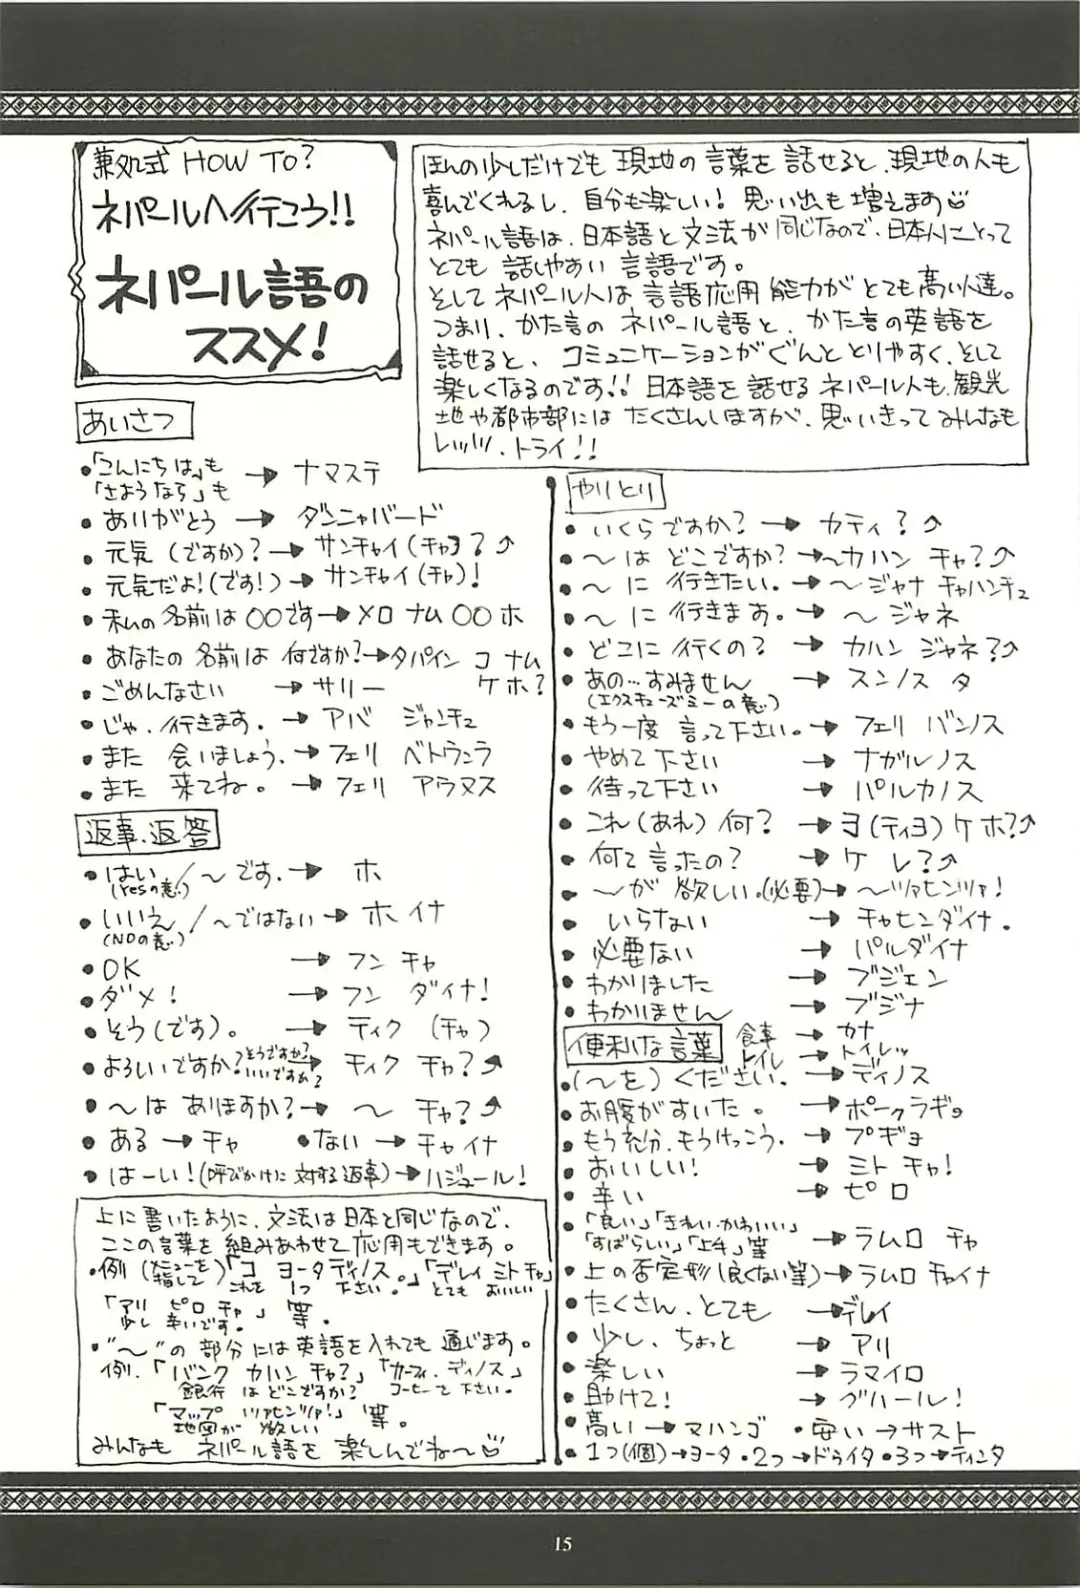 兼処式 HOW TO?
ネパールへ行こう!!
ネパール語の
ススメ!
ほんの少しだけでも 現地の 言葉を 話せると、現地の人も
喜んでくれるし、自分も楽しい! 思い出も増えます
ネパール語は、日本語と文法が同じなので、日本人にとって
とても 話しやすい 言語です。
そして ネパール人は 言語応用能力が とても高い人達。
つまり、かた言の ネパール語と、かた言の英語を
話せると、コミュニケーションがぐんと とりやすく、そして
楽しくなるのです!! 日本語を 話せる ネパール人も、観光
地や都市部には たくさんいますが、思いきって みんなも
レッツ、トライ!!
あいさつ
•「こんにちは」も
「さようなら」も → ナマステ
• ありがとう → ダンニャバード
• 元気(ですか)? → サンチャイ(チャ)?
• 元気だよ!(です!) → サンチャイ(チャ)!
• 私の名前は〇〇です → メロ ナム 〇〇 ホ
• あなたの 名前は 何ですか? → タパイン コ ナム
ケ ホ?
• ごめんなさい → サリー
• じゃ、行きます。 → アバ ジャンチュ
• また 会いましょう。 → フェリ ベトウンラ
• また 来てね。 → フェリ アウヌス
返事、返答
• はい/〜です。 → ホ
(Yesの意)
• いいえ/〜ではない → ホイナ
(NOの意)
• OK → フン チャ
• ダメ! → フン ダイナ!
• そう(です)。 → ティク (チャ)
• よろしいですか?そうですか?いいですか? → ティク チャ?
• 〜は ありますか? → 〜 チャ?
• ある → チャ •ない → チャイナ
• はーい!(呼びかけに対する返事) → ハジュール!
上に書いたように、文法は日本と同じなので、
ここの言葉を 組みあわせて 応用もできます。
•例(メニューを指して)「コ ヨータ ディノス。」「デレイ ミト チャ」
これを 1つ 下さい。 とても おいしい
「アリ ピロ チャ」等。
少し 辛いです。
•"〜"の 部分には 英語を 入れても 通じます。
例.「バンク カハン チャ?」「カーフィ、ディノス」
銀行 は どこですか? コーヒーて 下さい。
「マップ ツァヒンツァ!」等。
地図が 欲しい
みんなも ネパール語を 楽しんでね〜
やりとり
• いくらですか? → カティ?
• 〜は どこですか? → 〜カハン チャ?
• 〜に 行きたい。 → 〜ジャナ チャハンチュ
• 〜に 行きます。 → 〜ジャネ
• どこに 行くの? → カハン ジャネ?
• あの…すみません → スンノス タ
(エクスキューズミーの意)
• もう一度 言って下さい。 → フェリ バンノス
• やめて下さい → ナガルノス
• 待って下さい → パルカノス
• これ(あれ)何? → ヨ(ティヨ)ケ ホ?
• 何て言ったの? → ケ レ?
• 〜が 欲しい。(必要) → 〜ツァヒンツァ!
• いらない → チャヒンダイナ。
• 必要ない → パルダイナ
• わかりました → ブジェン
• わかりません → ブジナ
便利な言葉
食事 → カナ
トイレ → トイレッ
•(〜を)ください。 → ディノス
• お腹がすいた。 → ボークラギョ
• もう充分、もうけっこう。 → プギョ
• おいしい! → ミト チャ!
• 辛い → ピロ
•「良い」「きれい・かわいい」
「すばらしい」「上手」等 → ラムロ チャ
• 上の否定形(良くない等) → ラムロ チャイナ
• たくさん、とても → デレイ
• 少し、ちょっと → アリ
• 楽しい → ラマイロ
• 助けて! → グハール!
• 高い → マハンゴ •安い → サスト
•1つ(個)→ヨータ •2つ→ドゥイタ •3つ→ティンタ
15